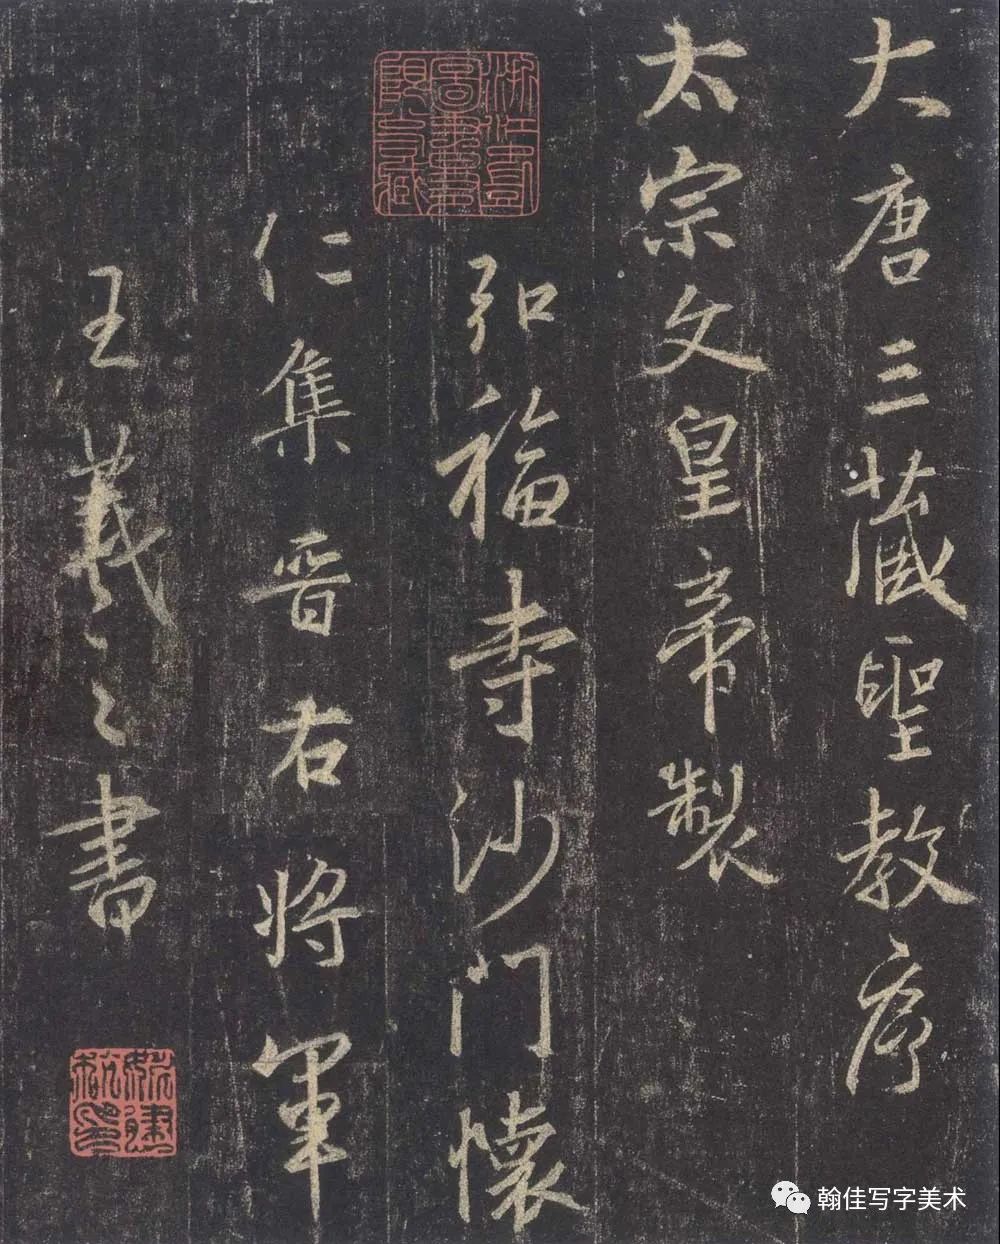 大唐三藏聖教序
太宗文皇帝製
弘福寺沙門懷
仁集晋右将軍
王羲之書
翰佳写字美术